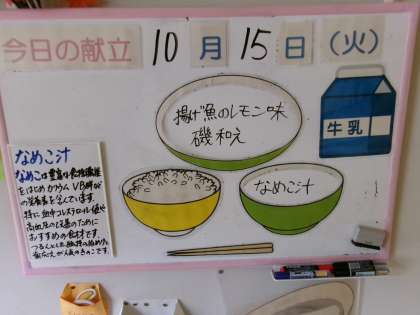 今日の献立 10月15日(火)
揚げ魚のレモン味
磯和え
牛乳
なめこ汁
なめこ汁
なめこは豊富な食物繊維
をはじめカリウム、VB群など
の栄養素を含んでいます。
特に血中コレステロール値や
高血圧の改善のために
おすすめの食材です。